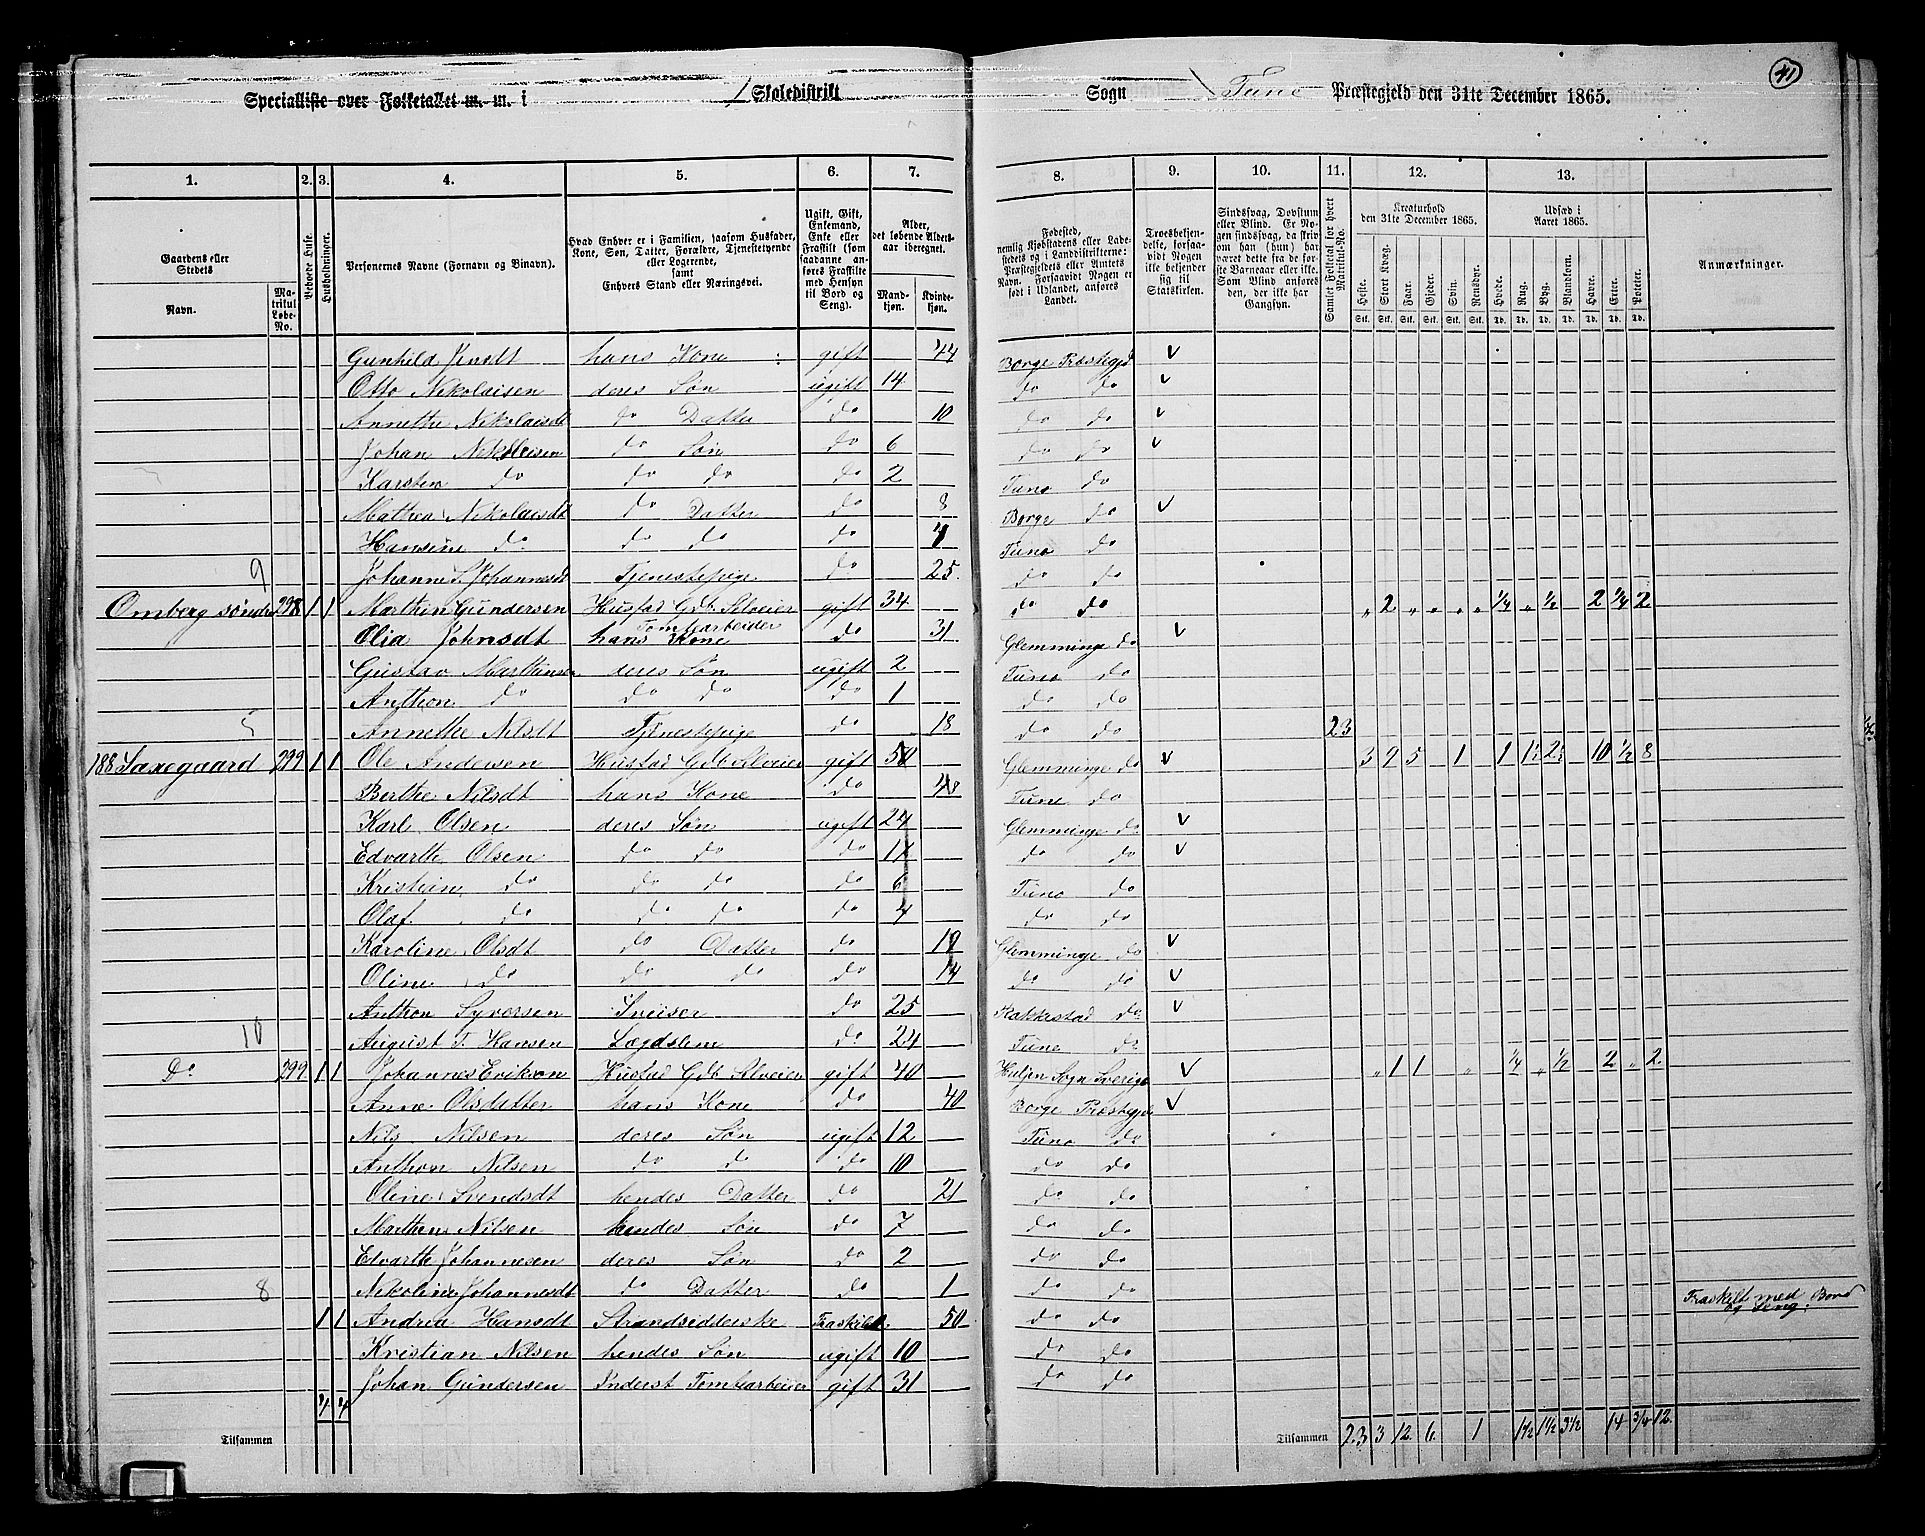 Specialliste over Folketallet m. m. i 1 Skoledistrikt Sogn Tune Præstegjeld den 31te December 1865. 41
1. 2. 3. 4. 5. 6. 7. 8. 9. 10. 11. 12. 13.
Gaardens eller Stedets
Navn. Matrikul Løbe-No.
Beboede Huse.
Husholdninger.
Personernes Navne (Fornavn og Binavn).
Hvad Enhver er i Familien, saasom Husfader, Kone, Søn, Datter, Forældre, Tjenestetyende eller Logerende, samt Enhvers Stand eller Næringsvei.
Ugift, Gift, Enkemand, Enke eller Fraskilt (som saadanne anføres Fraskilte med Hensyn til Bord og Seng).
Alder, det løbende Aldersaar iberegnet.
Mandkjøn. Kvindekjøn.
Fødested, nemlig Kjøbstadens eller Ladestedets og i Landdistrikterne: Præstegjeldets eller Amtets Navn. Forsaavidt Nogen er født i Udlandet, anføres Landet.
Troesbekjendelse, forsaavidt Nogen ikke bekjender sig til Statskirken.
Sindssvag, Døvstum eller Blind. Er Nogen sindssvag, da skrives om han (hun) har været dette fra de første Barneaar eller ikke. Som Blind anføres den, der ikke har Gangsyn.
Samlet Folketal for hvert Matrikul-No.
Kreaturhold den 31te December 1865.
Heste. Stort Kvæg. Faar. Gjeder. Svin. Rensdyr.
Stk. Stk. Stk. Stk. Stk. Stk.
Udsæd i Aaret 1865.
Hvede. Rug. Byg. Blandkorn. Havre. Erter. Poteter.
Td. Td. Td. Td. Td. Td. Td.
Anmærkninger.
Gunhild hans Kone gift 44 Borge Præstegjd v
Otto Nikolaisen deres Søn ugift 14 do do v
Annethe Nikolaisdt do Datter do 10 do do v
Johan Nikolaisen do Søn do 6 do do v
Karsten do do do do 2 Tune do
Mathea Nikolaisdt do Datter do 8 Borge do v
Hansine do do do do 4 Tune do
9 Johanne S. Johannesdt Tjenestepige do 25 do do
Omberg søndre 298 1 1 Marthin Gundersen Husfad Gdb Selveier gift 34 do do „ 2 „ „ „ „ 1/4 „ 1/2 2 1/4 2
Tomtearbeider
Olia Johnsdt hans Kone do 31 Glemminge do v
Gustav Marthinsen deres Søn ugift 2 Tune do
Anthon do do do do 1 do do
5 Annethe Nilsdt Tjenestepige do 18 do do 23
188 Saxegaard 299 1 1 Ole Andersen Husfad Gdb Selveier gift 50 Glemminge do v 3 9 5 1 1 1½ 2½ 10 1/2 8
Berthe Nilsdt hans Kone do 48 Tune do
Karl Olsen deres Søn ugift 24 Glemminge do v
Edvarth Olsen do do do 17 do do v
Kristian do do do do 6 Tune do
Olaf do do do do 4 do do
Karoline Olsdt do Datter do 19 Glemminge do v
Oline do do do do 14 do do v
Anthon Syversen Sveiser do 25 Rakkestad do v
10 August T. Hansen Lægdslem do 24 Tune do
Do 299 1 1 Johannes Erikson Husfad Gdb Selveier gift 40 Sogn Sverige v „ 1 1 „ 1/4 „ 1/2 2 „ 2
Anne Olsdatter hans Kone do 40 Borge Præstegjd v
Nils Nilsen deres Søn ugift 12 Tune do
Anthon Nilsen do do do 10 do do
Oline Svendsdt hendes Datter do 21 do do
Marthin Nilsen hendes Søn do 7 do do
Edvarth Johannesen deres Søn do 2 do do
8 Nikoline Johannesdt do Datter do 1 do do
1 1 Andrea Hansdt Strandsidderske Fraskilt 50 do do Fraskilt med Bord og Seng.
Kristian Nilsen hendes Søn ugift 10 do do
Johan Gundersen Inderst Tomtearbeider gift 31 do do
Tilsammen 4 4 Tilsammen 23 3 12 6 1 1½ 1½ 3½ 14 3/4 12